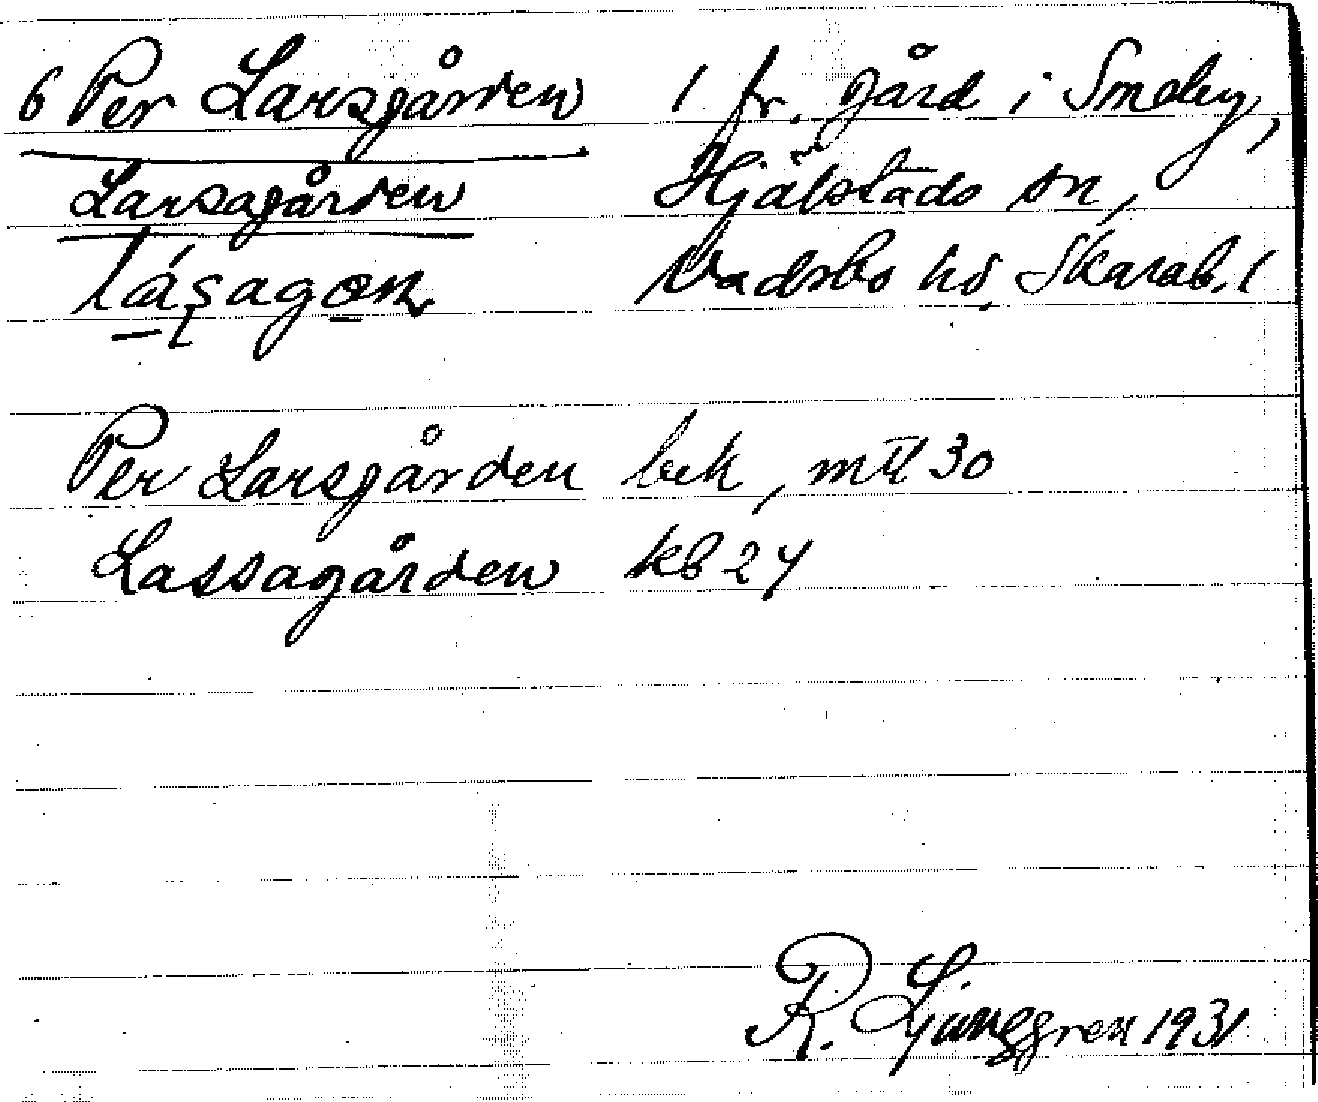 6 Per Larsgården 1 fr. gård i Smeby,
Larsagården Hjälstads sn,
lásagɷn Vadsbo hd, Skarab. l
Per Larsgården bek, mtl 30
Lassagården kb 24
R. Ljunggren 1931